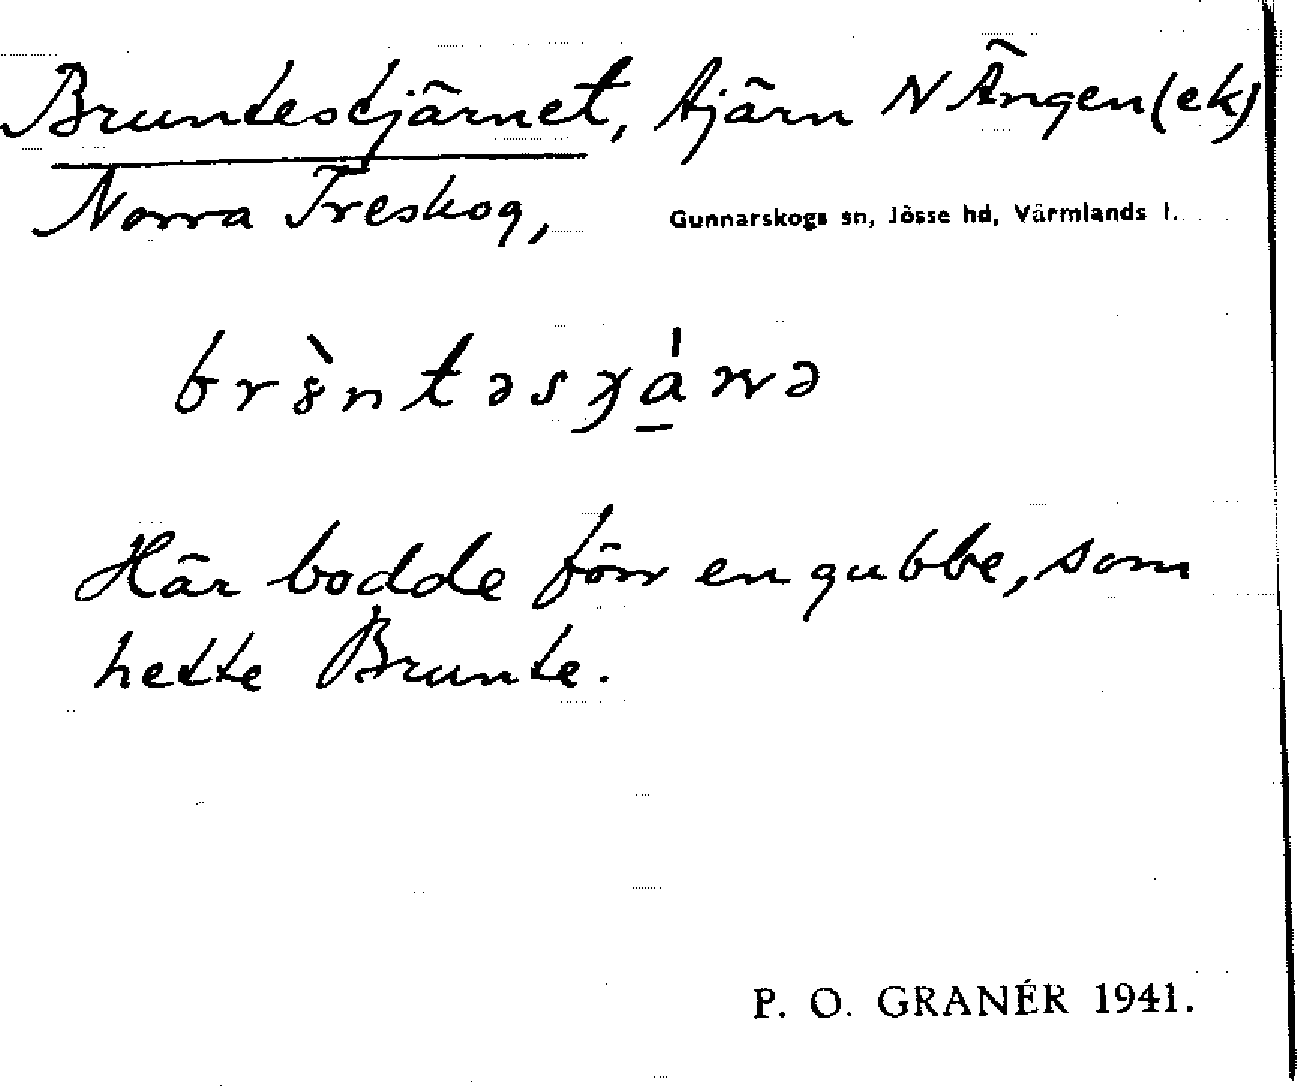 Bruntestjärnet, tjärn N Ängen (ek)
Norra Treskog, Gunnarskogs sn, Jösse hd, Värmlands l.
Här bodde förr en gubbe, som
hette Brunte.
P. O. GRANÉR 1941.